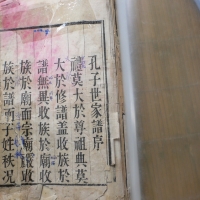 孔子世家譜序
禮莫大於尊祖典莫
大於修譜蓋收族於
譜無異收族於廟收
族於廟而宗廟嚴收
族於譜而子姓秩況